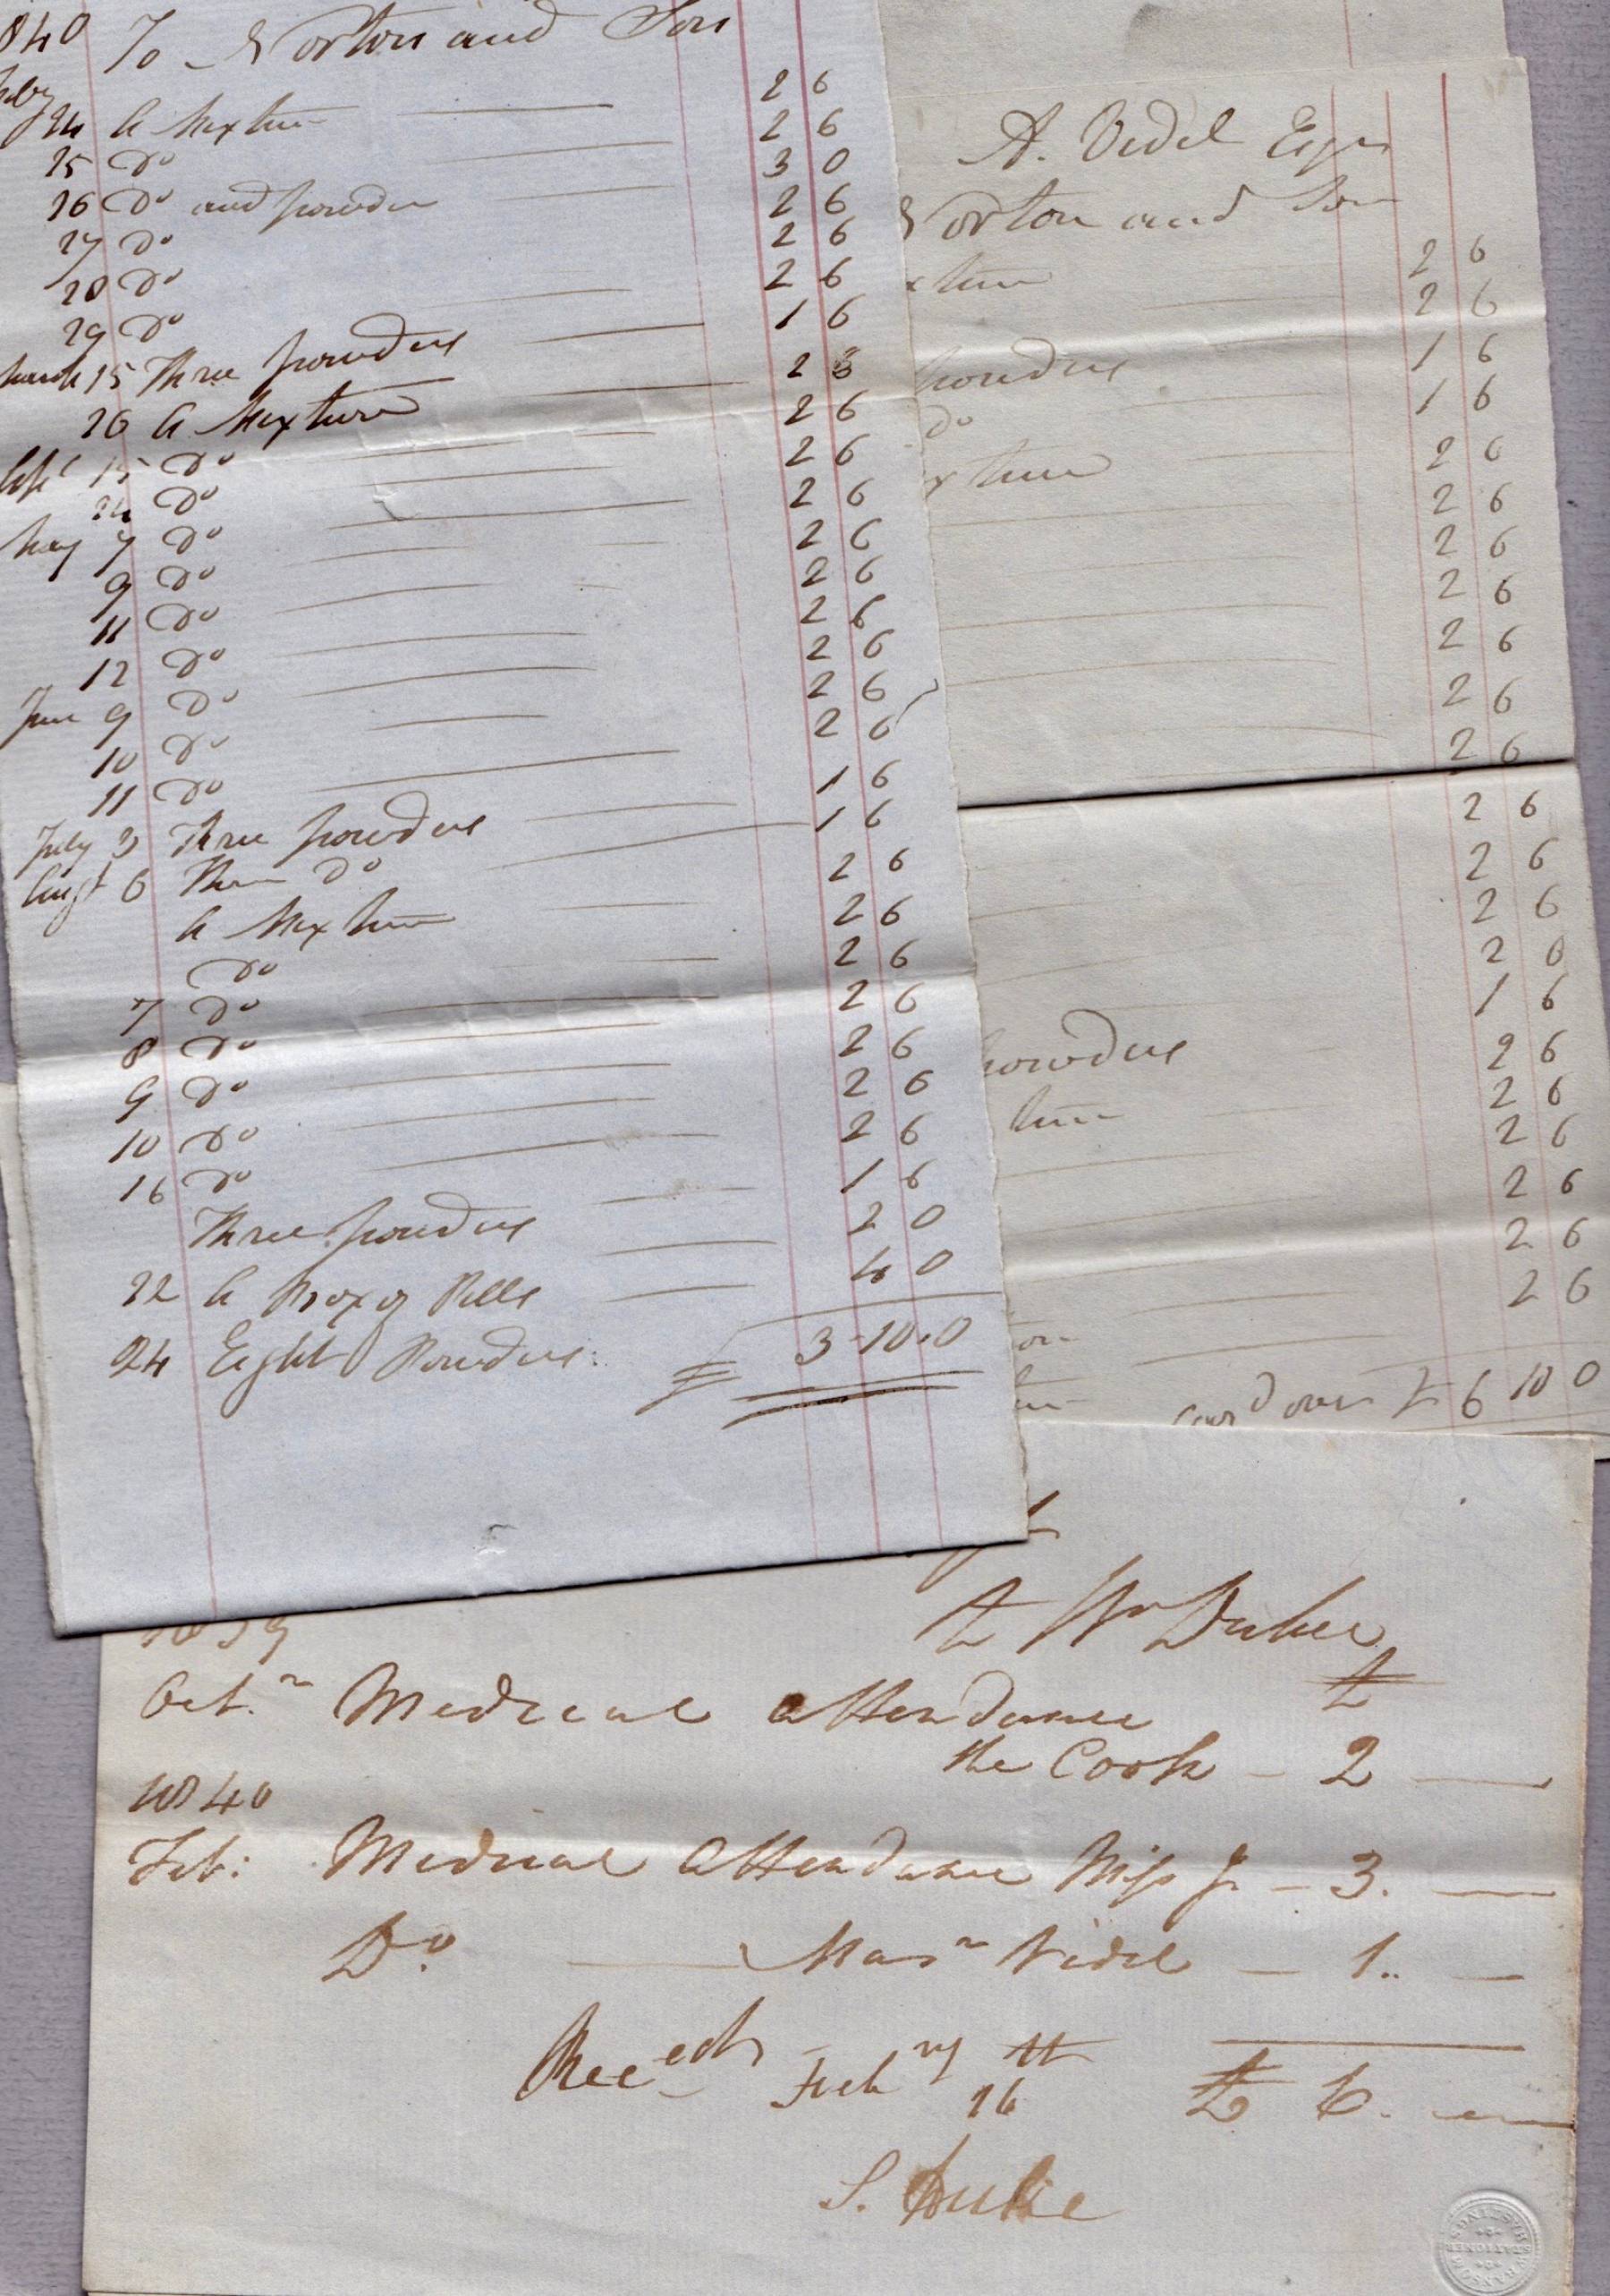 840 To Norton and Son
Feby 24 A Mixture 2 6
25 Do 2 6
26 Do and powder 3 0
27 Do 2 6
28 Do 2 6
29 Do 2 6
March 15 Three powders 1 6
26 A Mixture 2 6
Apl 15 Do 2 6
24 Do 2 6
May 7 Do 2 6
9 Do 2 6
11 Do 2 6
12 Do 2 6
June 9 Do 2 6
10 Do 2 6
11 Do 2 6
July 3 Three powders 1 6
Augt 6 Three Do 1 6
A Mixture 2 6
Do 2 6
7 Do 2 6
8 Do 2 6
9 Do 2 6
10 Do 2 6
16 Do 2 6
Three powders 1 6
22 A Box of Pills 2 0
24 Eight Powders 4 0
£ 3 10 0
A. Vidal Esqr
Norton and Son
xture 2 6
2 6
powders 1 6
Do 1 6
xture 2 6
2 6
2 6
2 6
2 6
2 6
2 6
2 6
2 6
2 6
2 0
powders 1 6
ture 2 6
2 6
2 6
2 6
2 6
2 6
Card over £ 6 10 0
1839
To Wm Duke
£
Octr Medical attendance
the Cook - 2 —
1840
Feb: Medical Attendance Miss J. - 3. —
Do — Masr Vidal - 1.. —
Receed - Feby 16 £ 6. —
S. Duke
HASTINGS
STATIONER